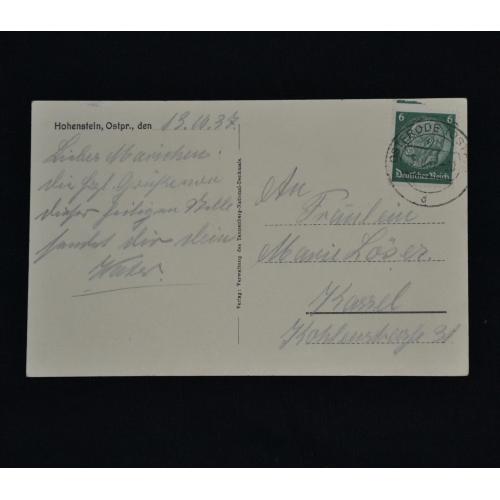 Hohenstein, Ostpr., den 13.10.37.
Liebes Mariechen.
Die hzl. Grüße von
dieser heiligen Stelle
sendet dir dein
Vater.
Verlag: Verwaltung des Tannenberg-National-Denkmals
6 6
Deutsches Reich
OSTERODE
d
An
Fräulein
Marie Löser.
Kassel
Kohlenstraße